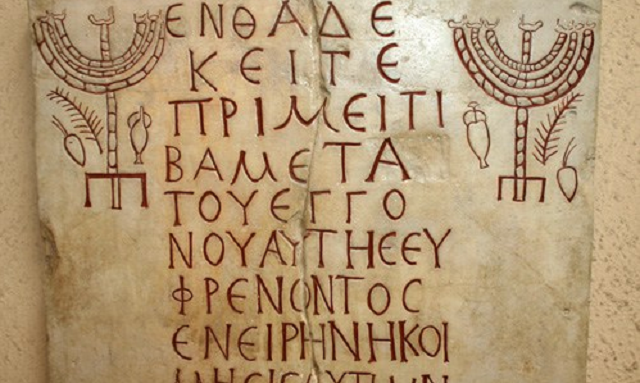 ΕΝΘΑΔΕ
ΚΕΙΤΕ
ΠΡΙΜΕΙΤΙ
ΒΑΜΕΤΑ
ΤΟΥΕΓΓΟ
ΝΟΥΑΥΤΗϹΕΥ
ΦΡΕΝΟΝΤΟϹ
ΕΝΕΙΡΗΝΗΚΟΙ